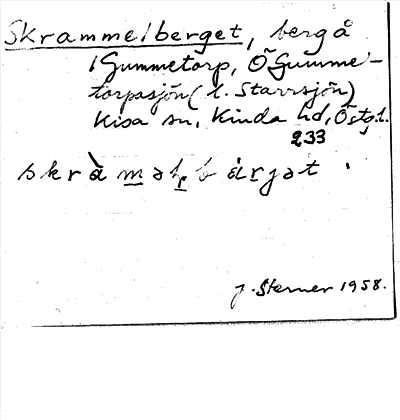 Skrammelberget, berg å
Gummetorp, Ö Gumme-
torpasjön (l. Starrsjön)
Kisa sn, Kinda hd, Östg.l.
233
skràməl bárgət
J. Sterner 1958.